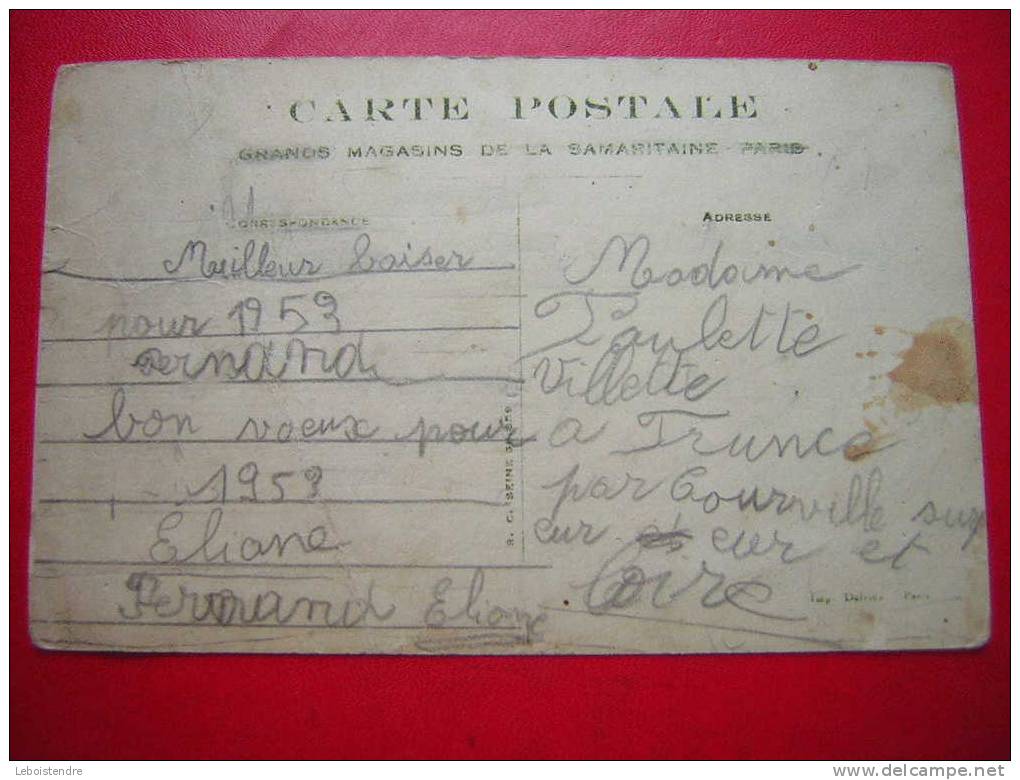 CARTE POSTALE
GRANDS MAGASINS DE LA SAMARITAINE PARIS
CORRESPONDANCE
Meilleur baiser
pour 1959
Fernand
bon voeux pour
1959
Eliane
Fernand Eliane
R. C. SEINE
ADRESSE
Madame
Paulette
Villette
a Trunce
par Courville sur
eur et eur et
Loire
Imp. Delrieu Paris
Leboistendre
delcampe.net